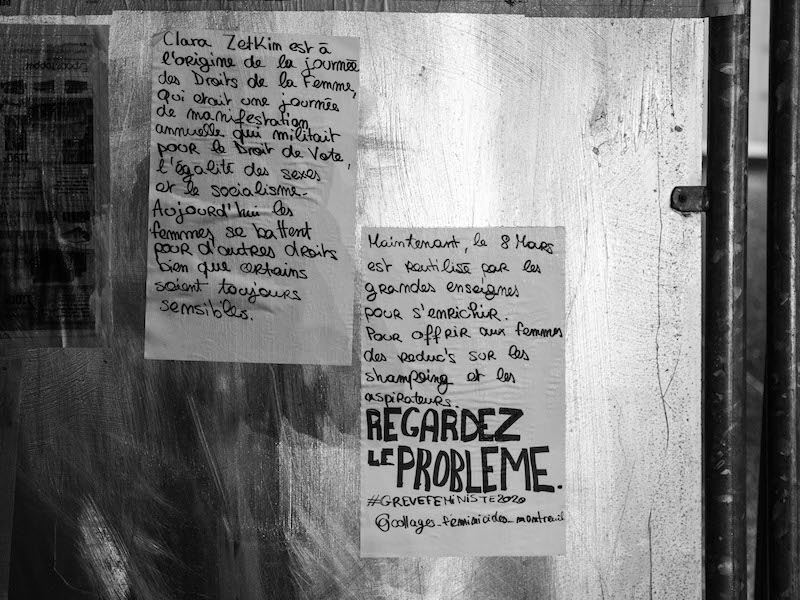 Clara Zetkin est à
l'origine de la journée
des Droits de la Femme,
qui était une journée
de manifestation
annuelle qui militait
pour le Droit de Vote,
l'égalité des sexes
et le socialisme.
Aujourd'hui les
femmes se battent
pour d'autres droits
bien que certains
soient toujours
sensibles.
Maintenant, le 8 Mars
est reutilisé par les
grandes enseignes
pour s'enrichir.
Pour offrir aux femmes
des reduc's sur les
shampoing et les
aspirateurs.
REGARDEZ
LE PROBLEME.
#GREVEFEMINISTE2020
@collages_feminicides_montreuil